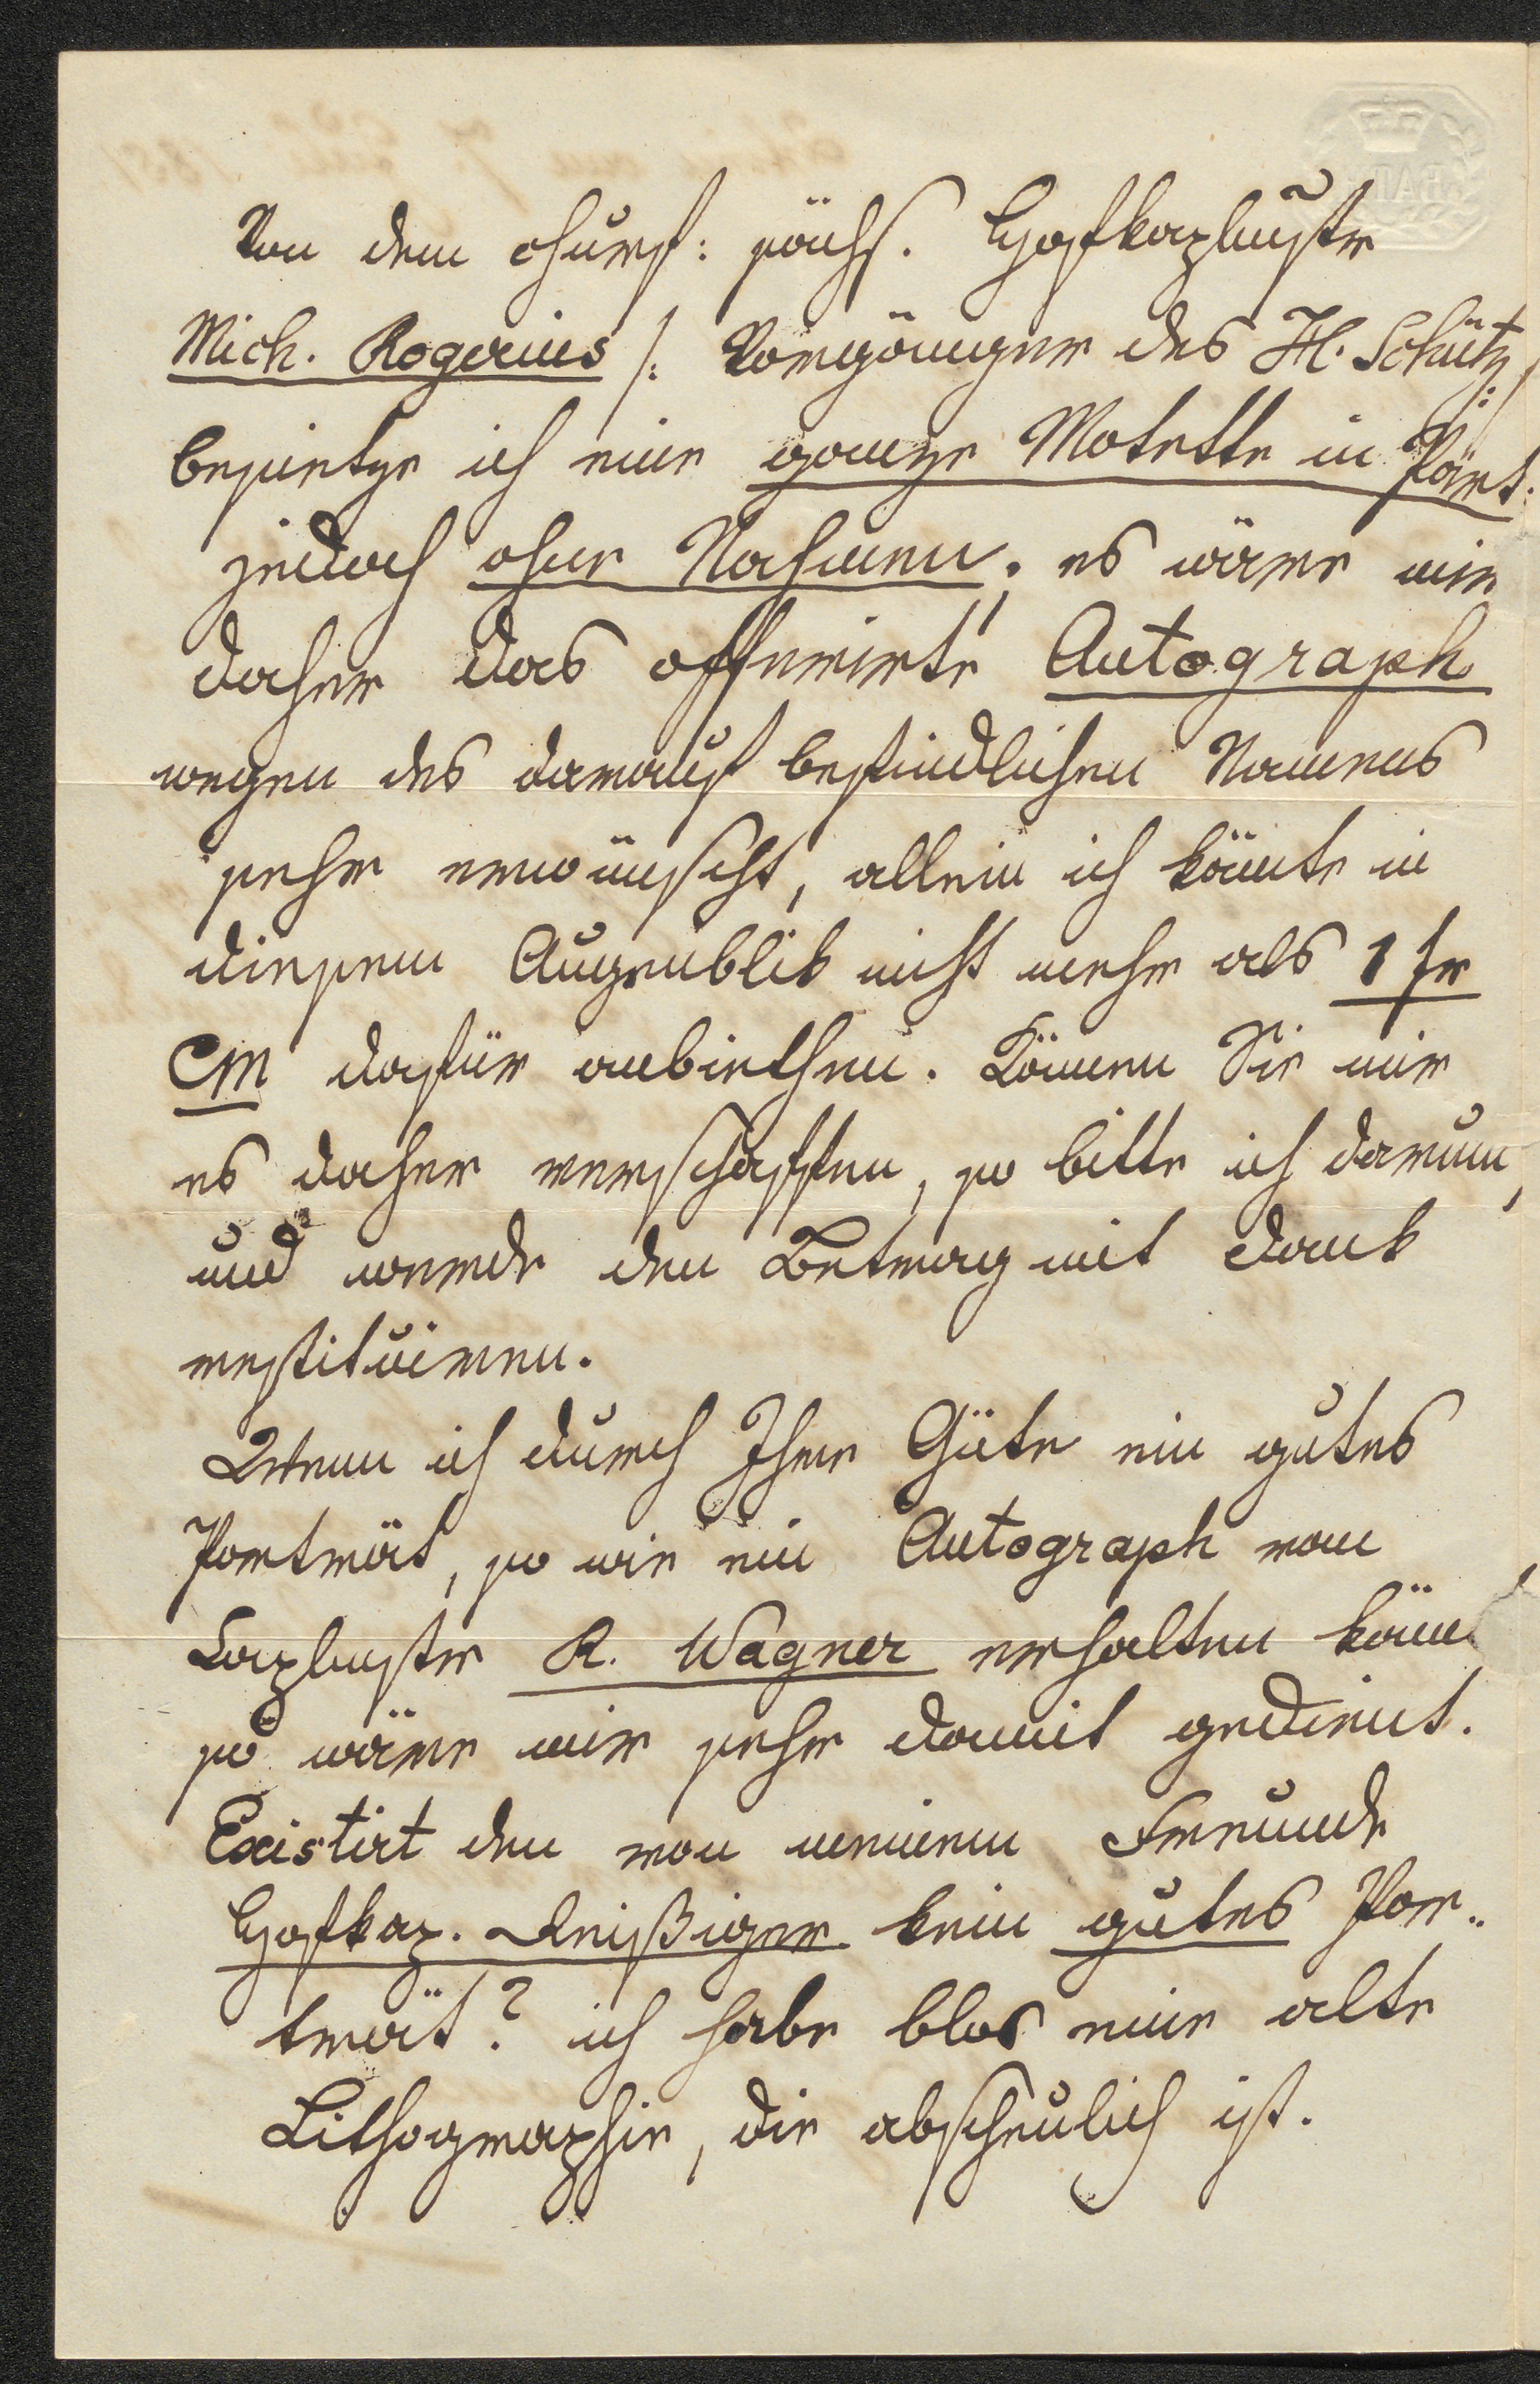 Von dem churf: sächs. Hofkaplmstr
Mich. Rogerius /: Vorgänger des H. Schütz :/
besietze ich eine ganze Motette in Part:
jedoch ohne Nahmen; es wäre mir
daher das offerirte Autograph
wegen des darauf befindlichen Namens
sehr erwünscht, allein ich könte in
diesem Augenblik nicht mehr als 1 fr
CM dafür anbiethen. Können Sie mir
es daher verschaffen, so bitte ich darum,
und werde den Betrag mit Dank
restituiren.
Wenn ich durch Ihre Güte ein gutes
Porträt, so wie ein Autograph von
Kaplmstr R. Wagner erhalten könn
so wäre mir sehr damit gedient.
Existirt den von meinem Freunde
Hofkap. Reißiger kein gutes Por-
trät? ich habe blos eine alte
Lithographie, die abscheulich ist.